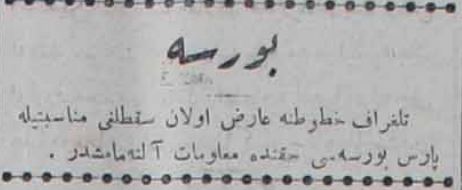 بورسه
تلغراف خطوطنه عارض اولان سقطلغی مناسبتیله
پارس بورسه‌سی حقنده معلومات آلنه‌مامشدر .